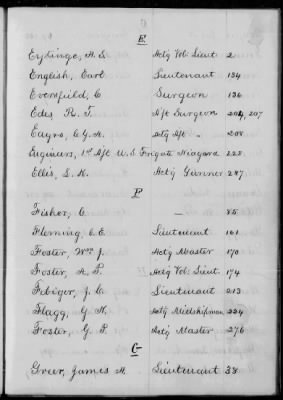 E
Eytinge, H. S. Actg Vol: Lieut 2
English, Earl Lieutenant 134
Eversfield, C Surgeon 136
Edes, R. T. A/st Surgeon 204, 207
Engineers, 1st A/st U.S. Frigate Niagara 228
Ellis, S. H. Actg Gunner 247
F
Fisher, C. — 85
Fleming, C. E. Lieutenant 161
Foster, Wm J. Actg Master 170
Foster, A. P. Actg Vol: Lieut. 174
Febiger, J. C. Lieutenant 213
Flagg, G. H. Actg Midshipman 234
Foster, G. P. Actg Master 276
G
Greer, James A. Lieutenant 38